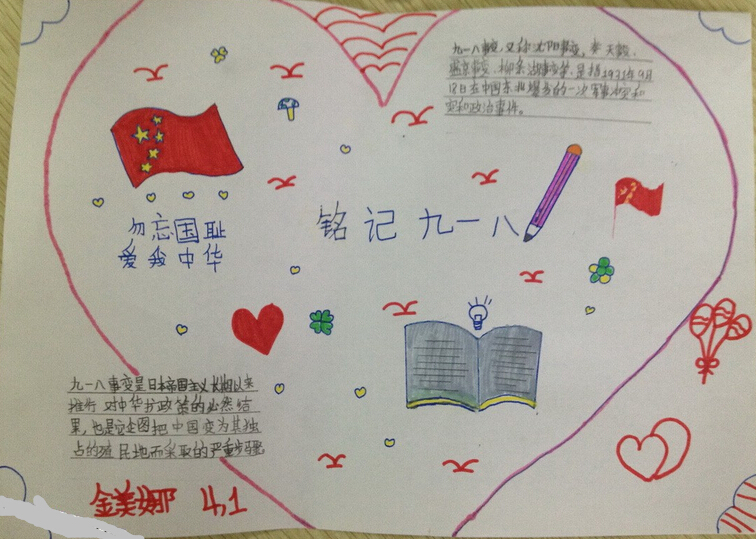 九一八事变，又称沈阳事变，奉天事变、
盛京事变、柳条湖事变等，是指1931年9月
18日在中国东北爆发的一次军事冲突和
突和政治事件。
勿忘国耻
爱我中华
铭记九一八
九一八事变是日本帝国主义长期以来
推行对中华扩政策的必然结
果，也是企图把中国变为其独
占的殖民地而采取的严重步骤
金美娜 4,1